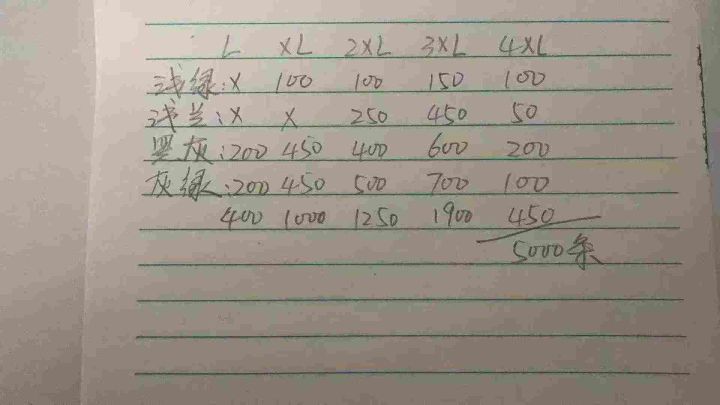 L XL 2XL 3XL 4XL
浅绿:X 100 100 150 100
浅兰:X X 250 450 50
黑灰:200 450 400 600 200
灰绿:200 450 500 700 100
400 1000 1250 1900 450
5000条